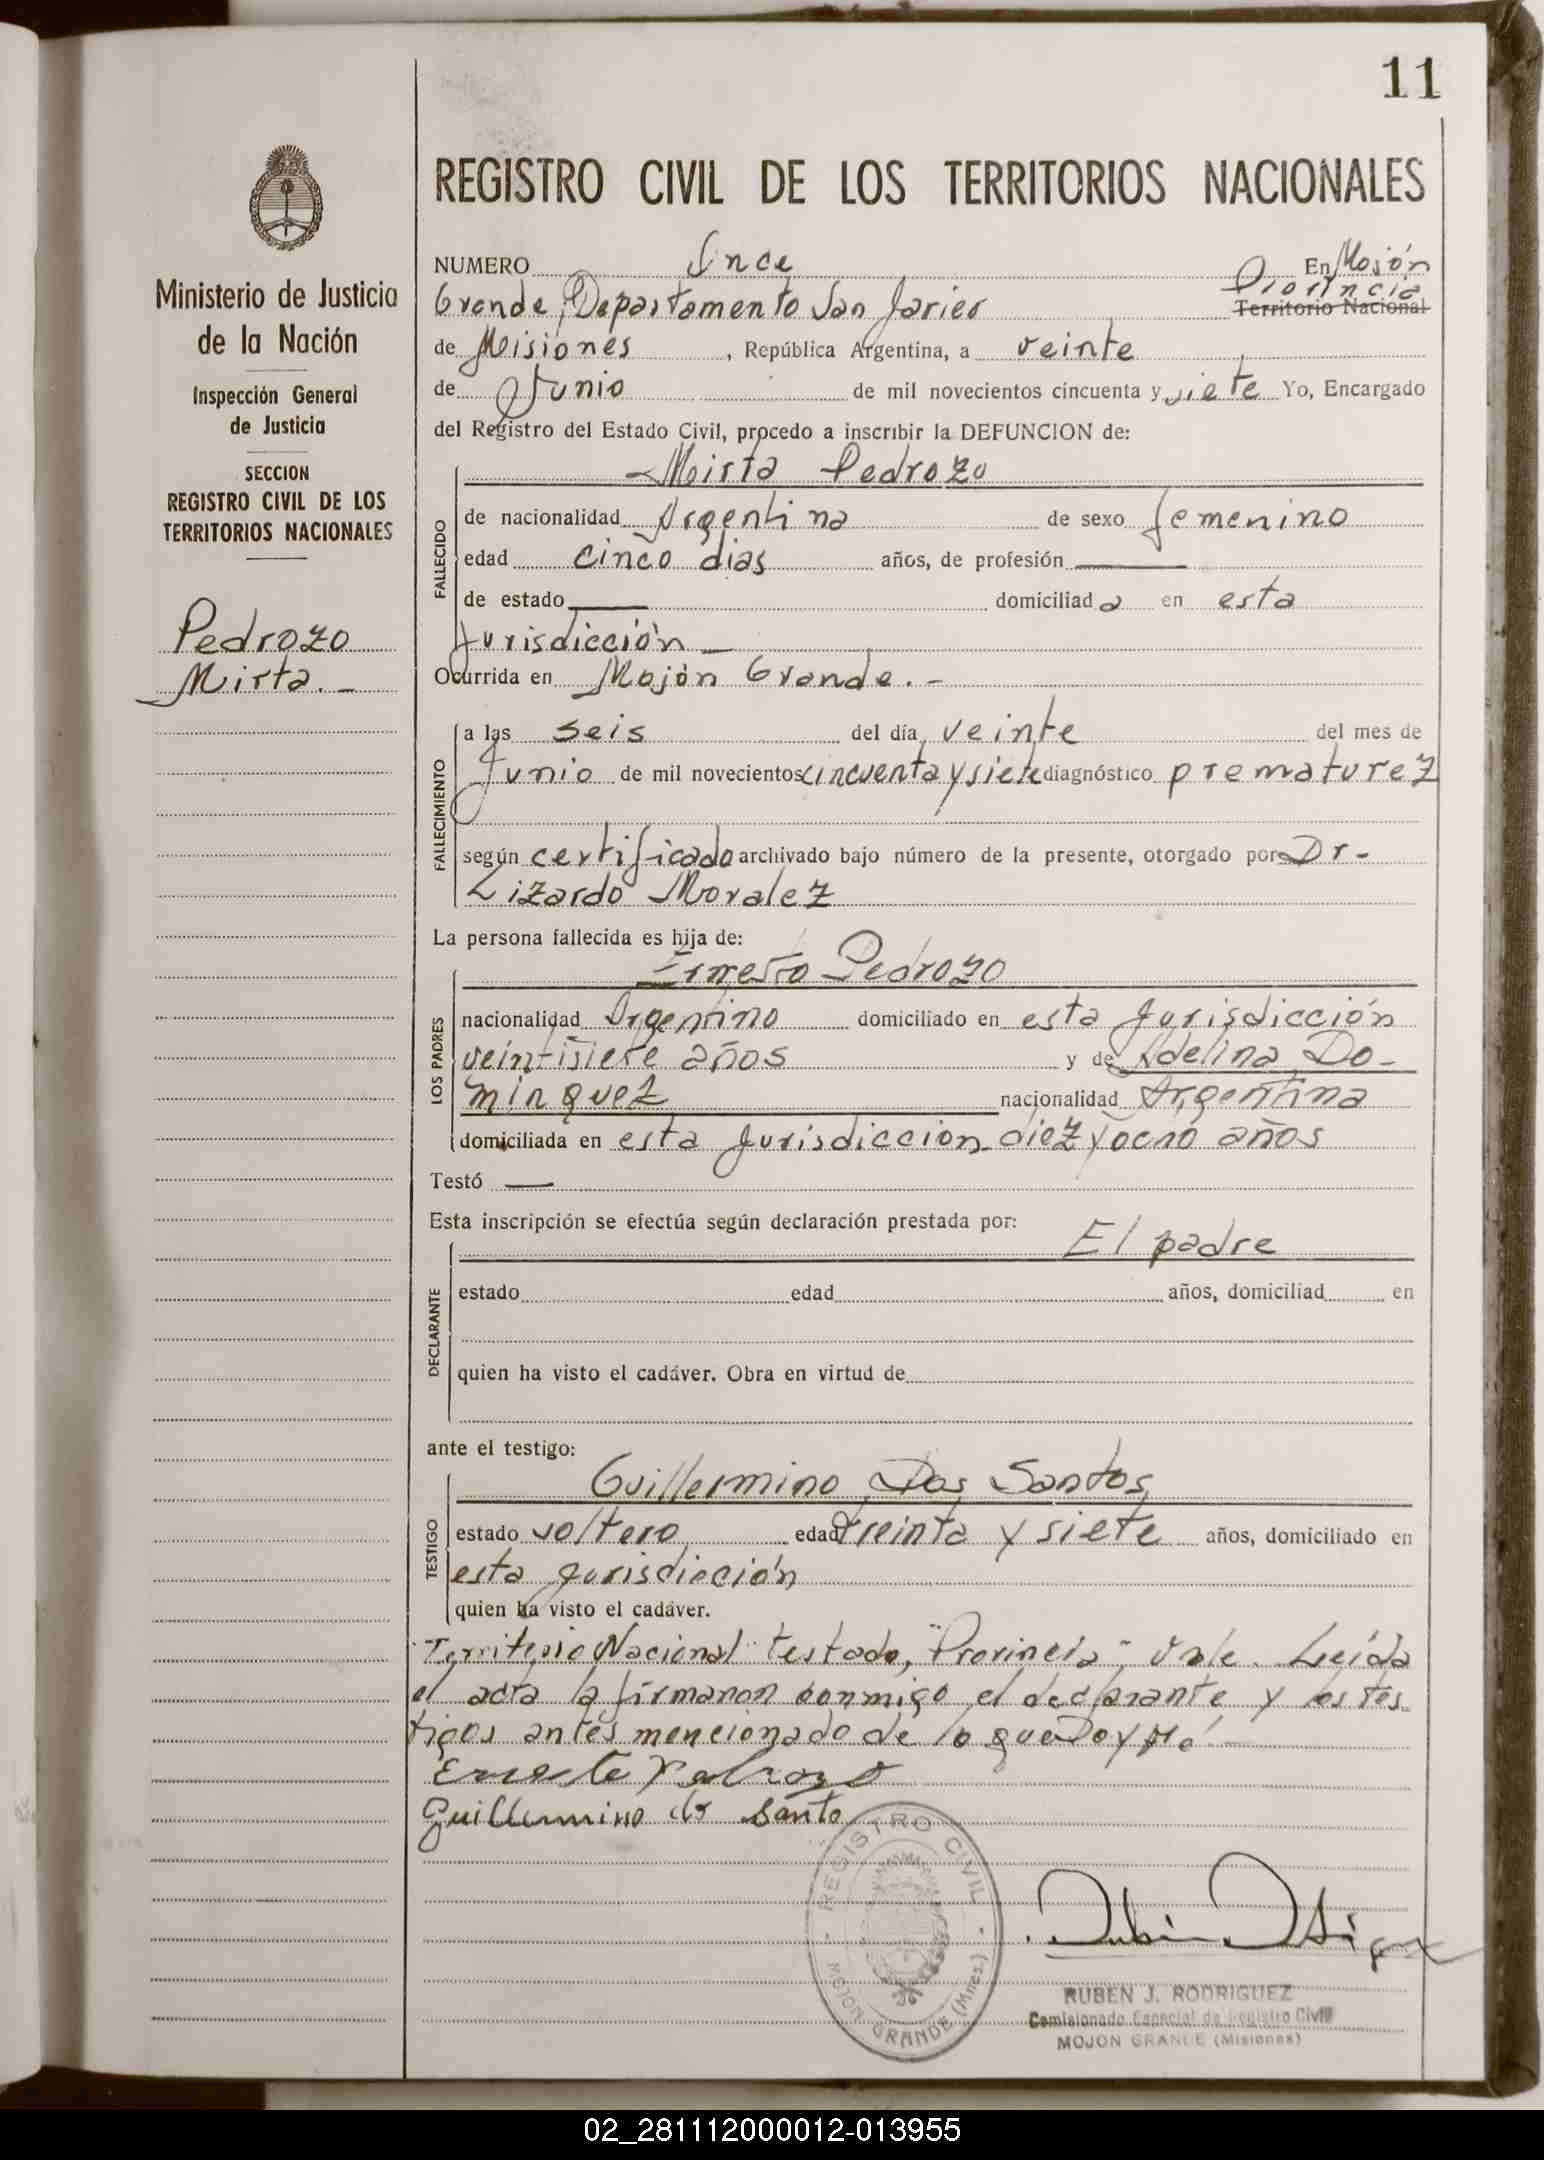 11
Ministerio de Justicia
de la Nación
Inspección General
de Justicia
SECCION
REGISTRO CIVIL DE LOS
TERRITORIOS NACIONALES
Pedrozo
Mirta. -
REGISTRO CIVIL DE LOS TERRITORIOS NACIONALES
NUMERO Once En Mojón
Provincia
Grande, Departamento San Javier Territorio Nacional
de Misiones, República Argentina, a veinte
de Junio de mil novecientos cincuenta y siete Yo, Encargado
del Registro del Estado Civil, procedo a inscribir la DEFUNCION de:
Mirta Pedrozo
FALLECIDO
de nacionalidad Argentina de sexo femenino
edad cinco dias años, de profesión —
de estado — domiciliada en esta
Jurisdicción —
Ocurrida en Mojón Grande. -
FALLECIMIENTO
a las seis del día veinte del mes de
Junio de mil novecientos cincuenta y siete diagnóstico prematurez
según certificado archivado bajo número de la presente, otorgado por Dr-
Lizardo Moralez
La persona fallecida es hija de:
Ernesto Pedrozo
LOS PADRES
nacionalidad Argentino domiciliado en esta Jurisdicción
veintisiete años y de Adelina Do-
minguez nacionalidad Argentina
domiciliada en esta Jurisdiccion diez y ocho años
Testó —
Esta inscripción se efectúa según declaración prestada por:
El padre
DECLARANTE
estado edad años, domiciliad en
quien ha visto el cadáver. Obra en virtud de
ante el testigo:
Guillermino Dos Santos
TESTIGO
estado soltero edad treinta y siete años, domiciliado en
esta Jurisdicción
quien ha visto el cadáver.
Territorio Nacional testado, "Provincia" Vale. Leída
el acta la firmaron conmigo el declarante y los tes-
tigos antes mencionado de lo que Doy Fé.
Ernesto Pedrozo
Guillermino do Santo
REGISTRO CIVIL
MOJON GRANDE (Mnes.)
RUBEN J. RODRIGUEZ
Comisionado Especial de Registro Civil
MOJON GRANDE (Misiones)
02_281112000012-013955